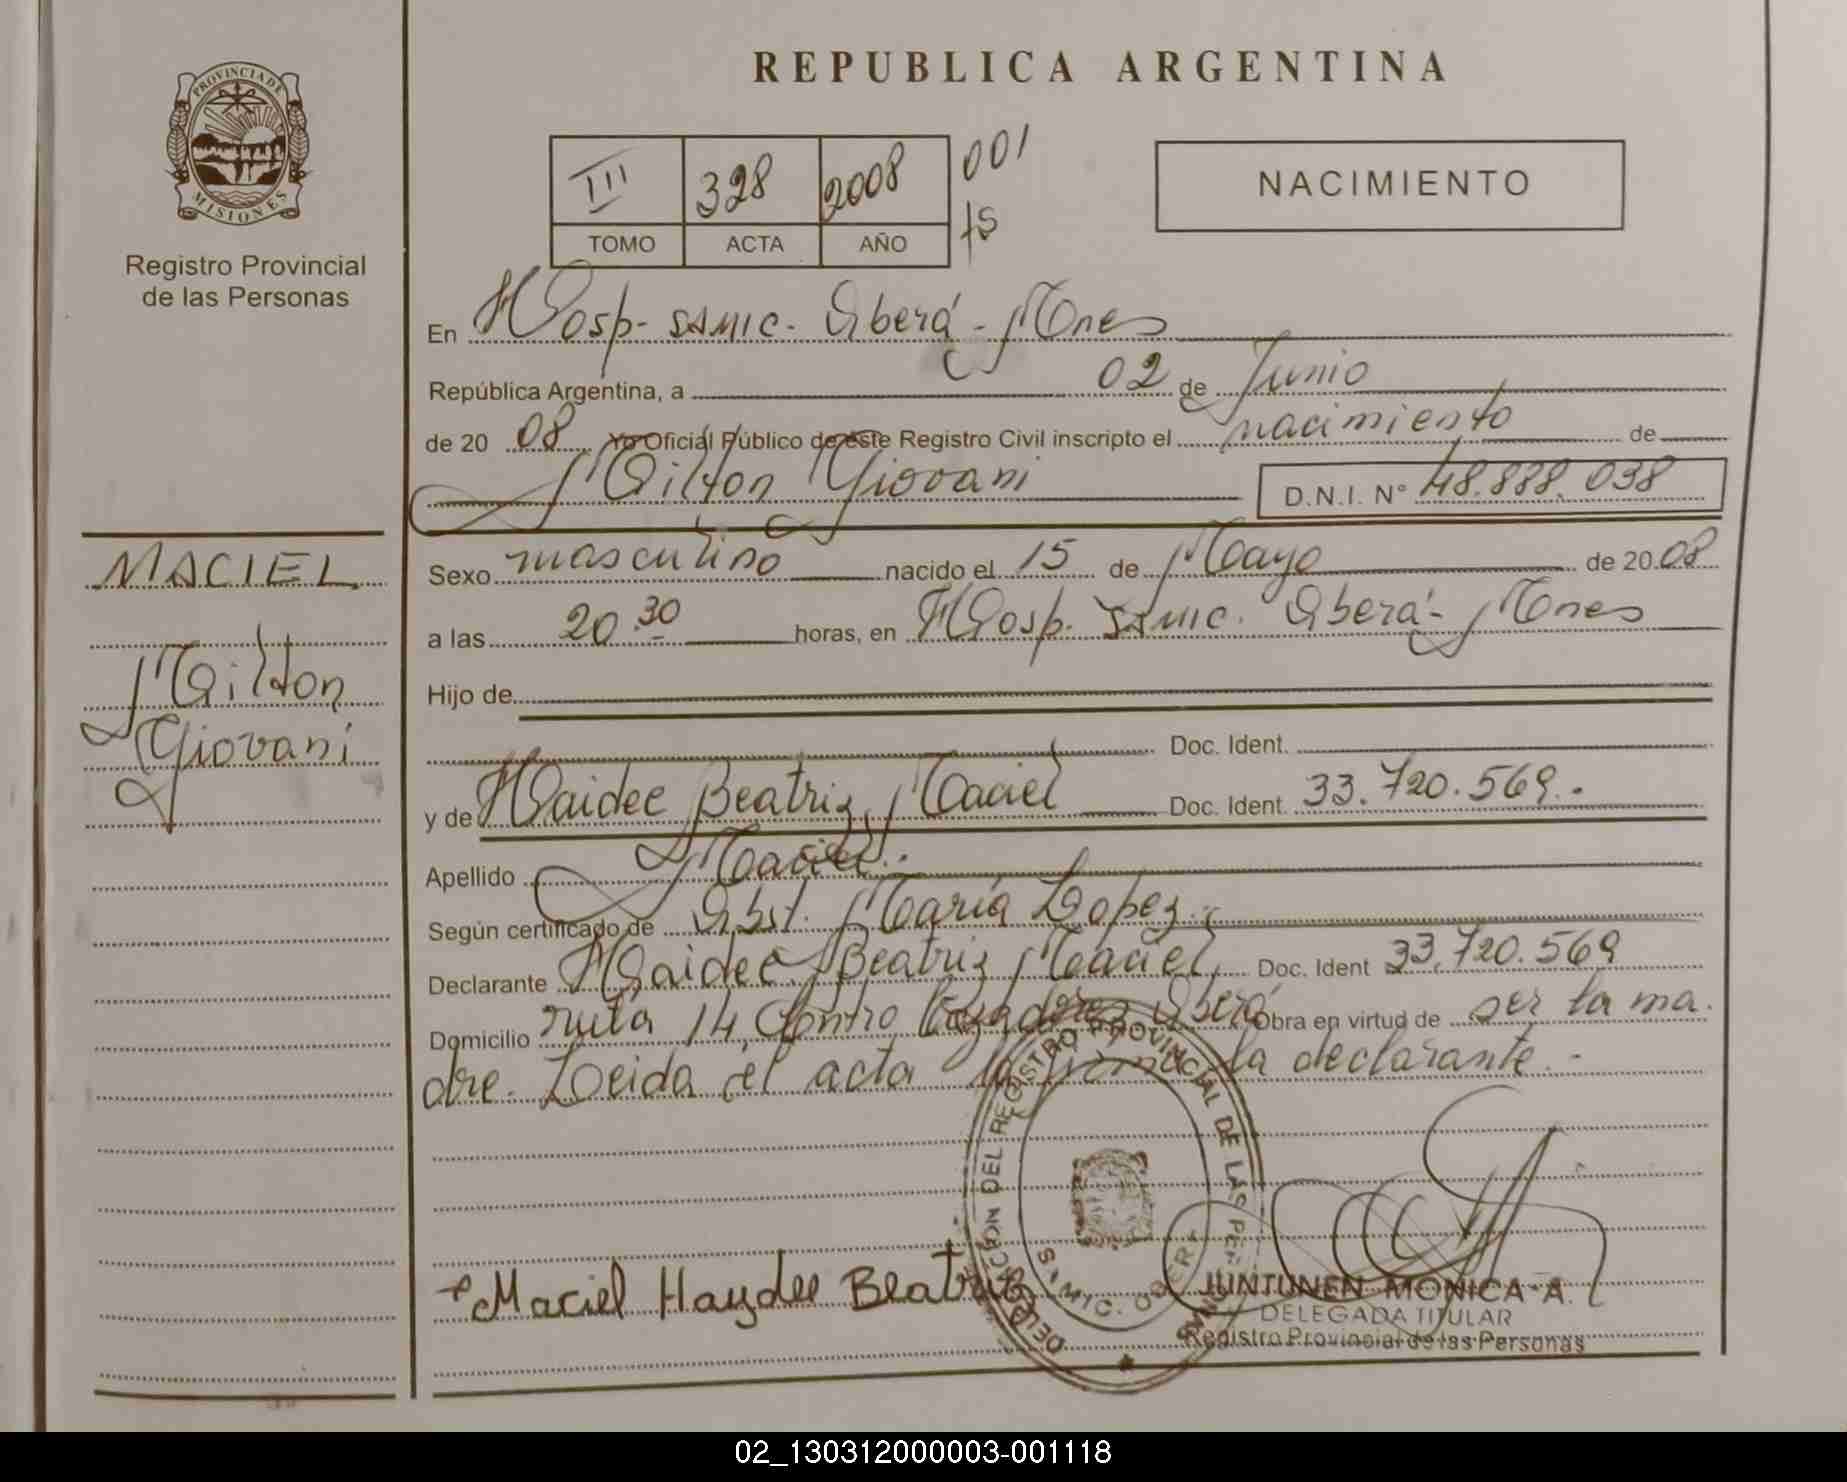 REPUBLICA ARGENTINA
PROVINCIA DE
MISIONES
Registro Provincial
de las Personas
III 328 2008 001
TOMO ACTA AÑO fs
NACIMIENTO
En Hosp. SAMIC. Oberá - Mnes
República Argentina, a 02 de Junio
de 20 08 Yo Oficial Público de este Registro Civil inscripto el nacimiento de
Milton Giovani D.N.I. N° 48.888.038
MACIEL
Milton
Giovani
Sexo masculino nacido el 15 de Mayo de 20 08
a las 20.30 horas, en Hosp. SAMIC. Oberá - Mnes
Hijo de
Doc. Ident.
y de Haidee Beatriz Maciel Doc. Ident. 33.720.569.-
Apellido Maciel.-
Según certificado de Obst. María Lopez.-
Declarante Haidee Beatriz Maciel, Doc. Ident 33.720.569
Domicilio ruta 14, Centro Cazadores Oberá Obra en virtud de ser la ma
dre. Leida el acta la firma la declarante.-
DELEGACION DEL REGISTRO PROVINCIAL DE LAS
Maciel Haydee Beatriz
JUNTUNEN MONICA A.
DELEGADA TITULAR
Registro Provincial de las Personas
02_130312000003-001118